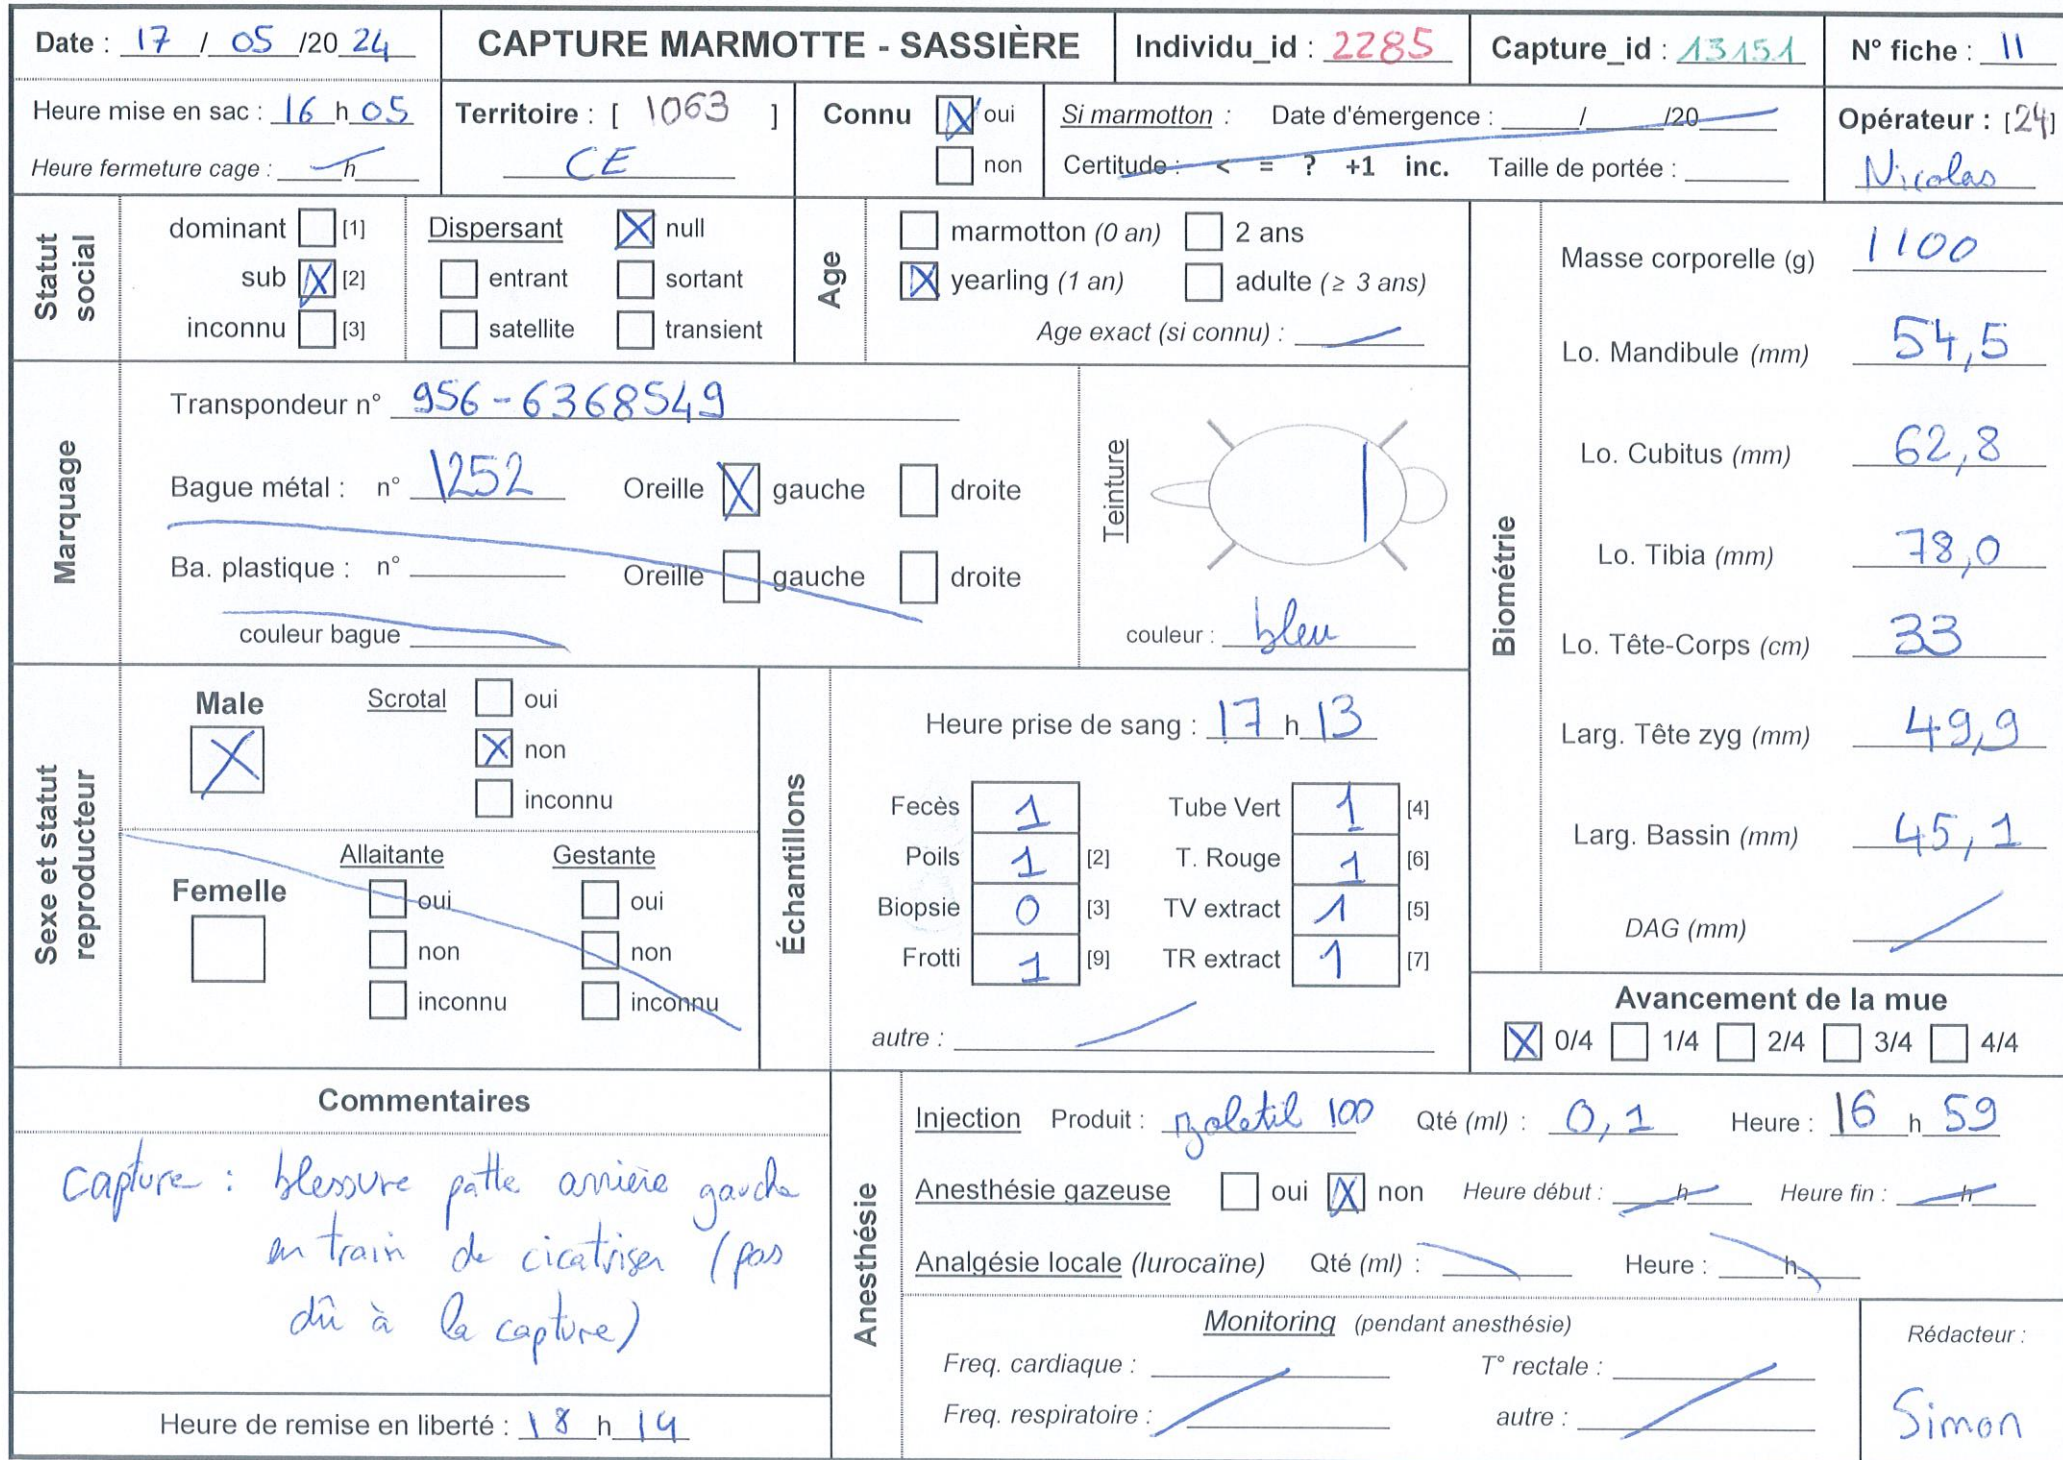 Date : 17 / 05 /20 24
CAPTURE MARMOTTE - SASSIÈRE
Individu_id : 2285
Capture_id : 13151
N° fiche : 11
Heure mise en sac : 16 h 05
Heure fermeture cage : h
Territoire : [ 1063 ]
CE
Connu
oui
non
Si marmotton : Date d'émergence : / /20
Certitude : < = ? +1 inc. Taille de portée :
Opérateur : [24]
Nicolas
Statut social
dominant [1]
sub [2]
inconnu [3]
Dispersant
null
entrant
sortant
satellite
transient
Age
marmotton (0 an)
2 ans
yearling (1 an)
adulte (≥ 3 ans)
Age exact (si connu) :
Marquage
Transpondeur n° 956-6368549
Bague métal : n° 1252 Oreille gauche droite
Ba. plastique : n° Oreille gauche droite
couleur bague
Teinture
couleur : bleu
Biométrie
Masse corporelle (g) 1100
Lo. Mandibule (mm) 54,5
Lo. Cubitus (mm) 62,8
Lo. Tibia (mm) 78,0
Lo. Tête-Corps (cm) 33
Larg. Tête zyg (mm) 49,9
Larg. Bassin (mm) 45,1
DAG (mm)
Sexe et statut reproducteur
Male
Scrotal
oui
non
inconnu
Femelle
Allaitante
oui
non
inconnu
Gestante
oui
non
inconnu
Échantillons
Heure prise de sang : 17 h 13
Fecès 1 Tube Vert 1 [4]
Poils 1 [2] T. Rouge 1 [6]
Biopsie 0 [3] TV extract 1 [5]
Frotti 1 [9] TR extract 1 [7]
autre :
Avancement de la mue
0/4 1/4 2/4 3/4 4/4
Commentaires
capture : blessure patte arrière gauche
en train de cicatriser (pas
dû à la capture)
Heure de remise en liberté : 18 h 14
Anesthésie
Injection Produit : zoletil 100 Qté (ml) : 0,1 Heure : 16 h 59
Anesthésie gazeuse oui non Heure début : h Heure fin : h
Analgésie locale (lurocaïne) Qté (ml) : Heure : h
Monitoring (pendant anesthésie)
Freq. cardiaque : T° rectale :
Freq. respiratoire : autre :
Rédacteur :
Simon